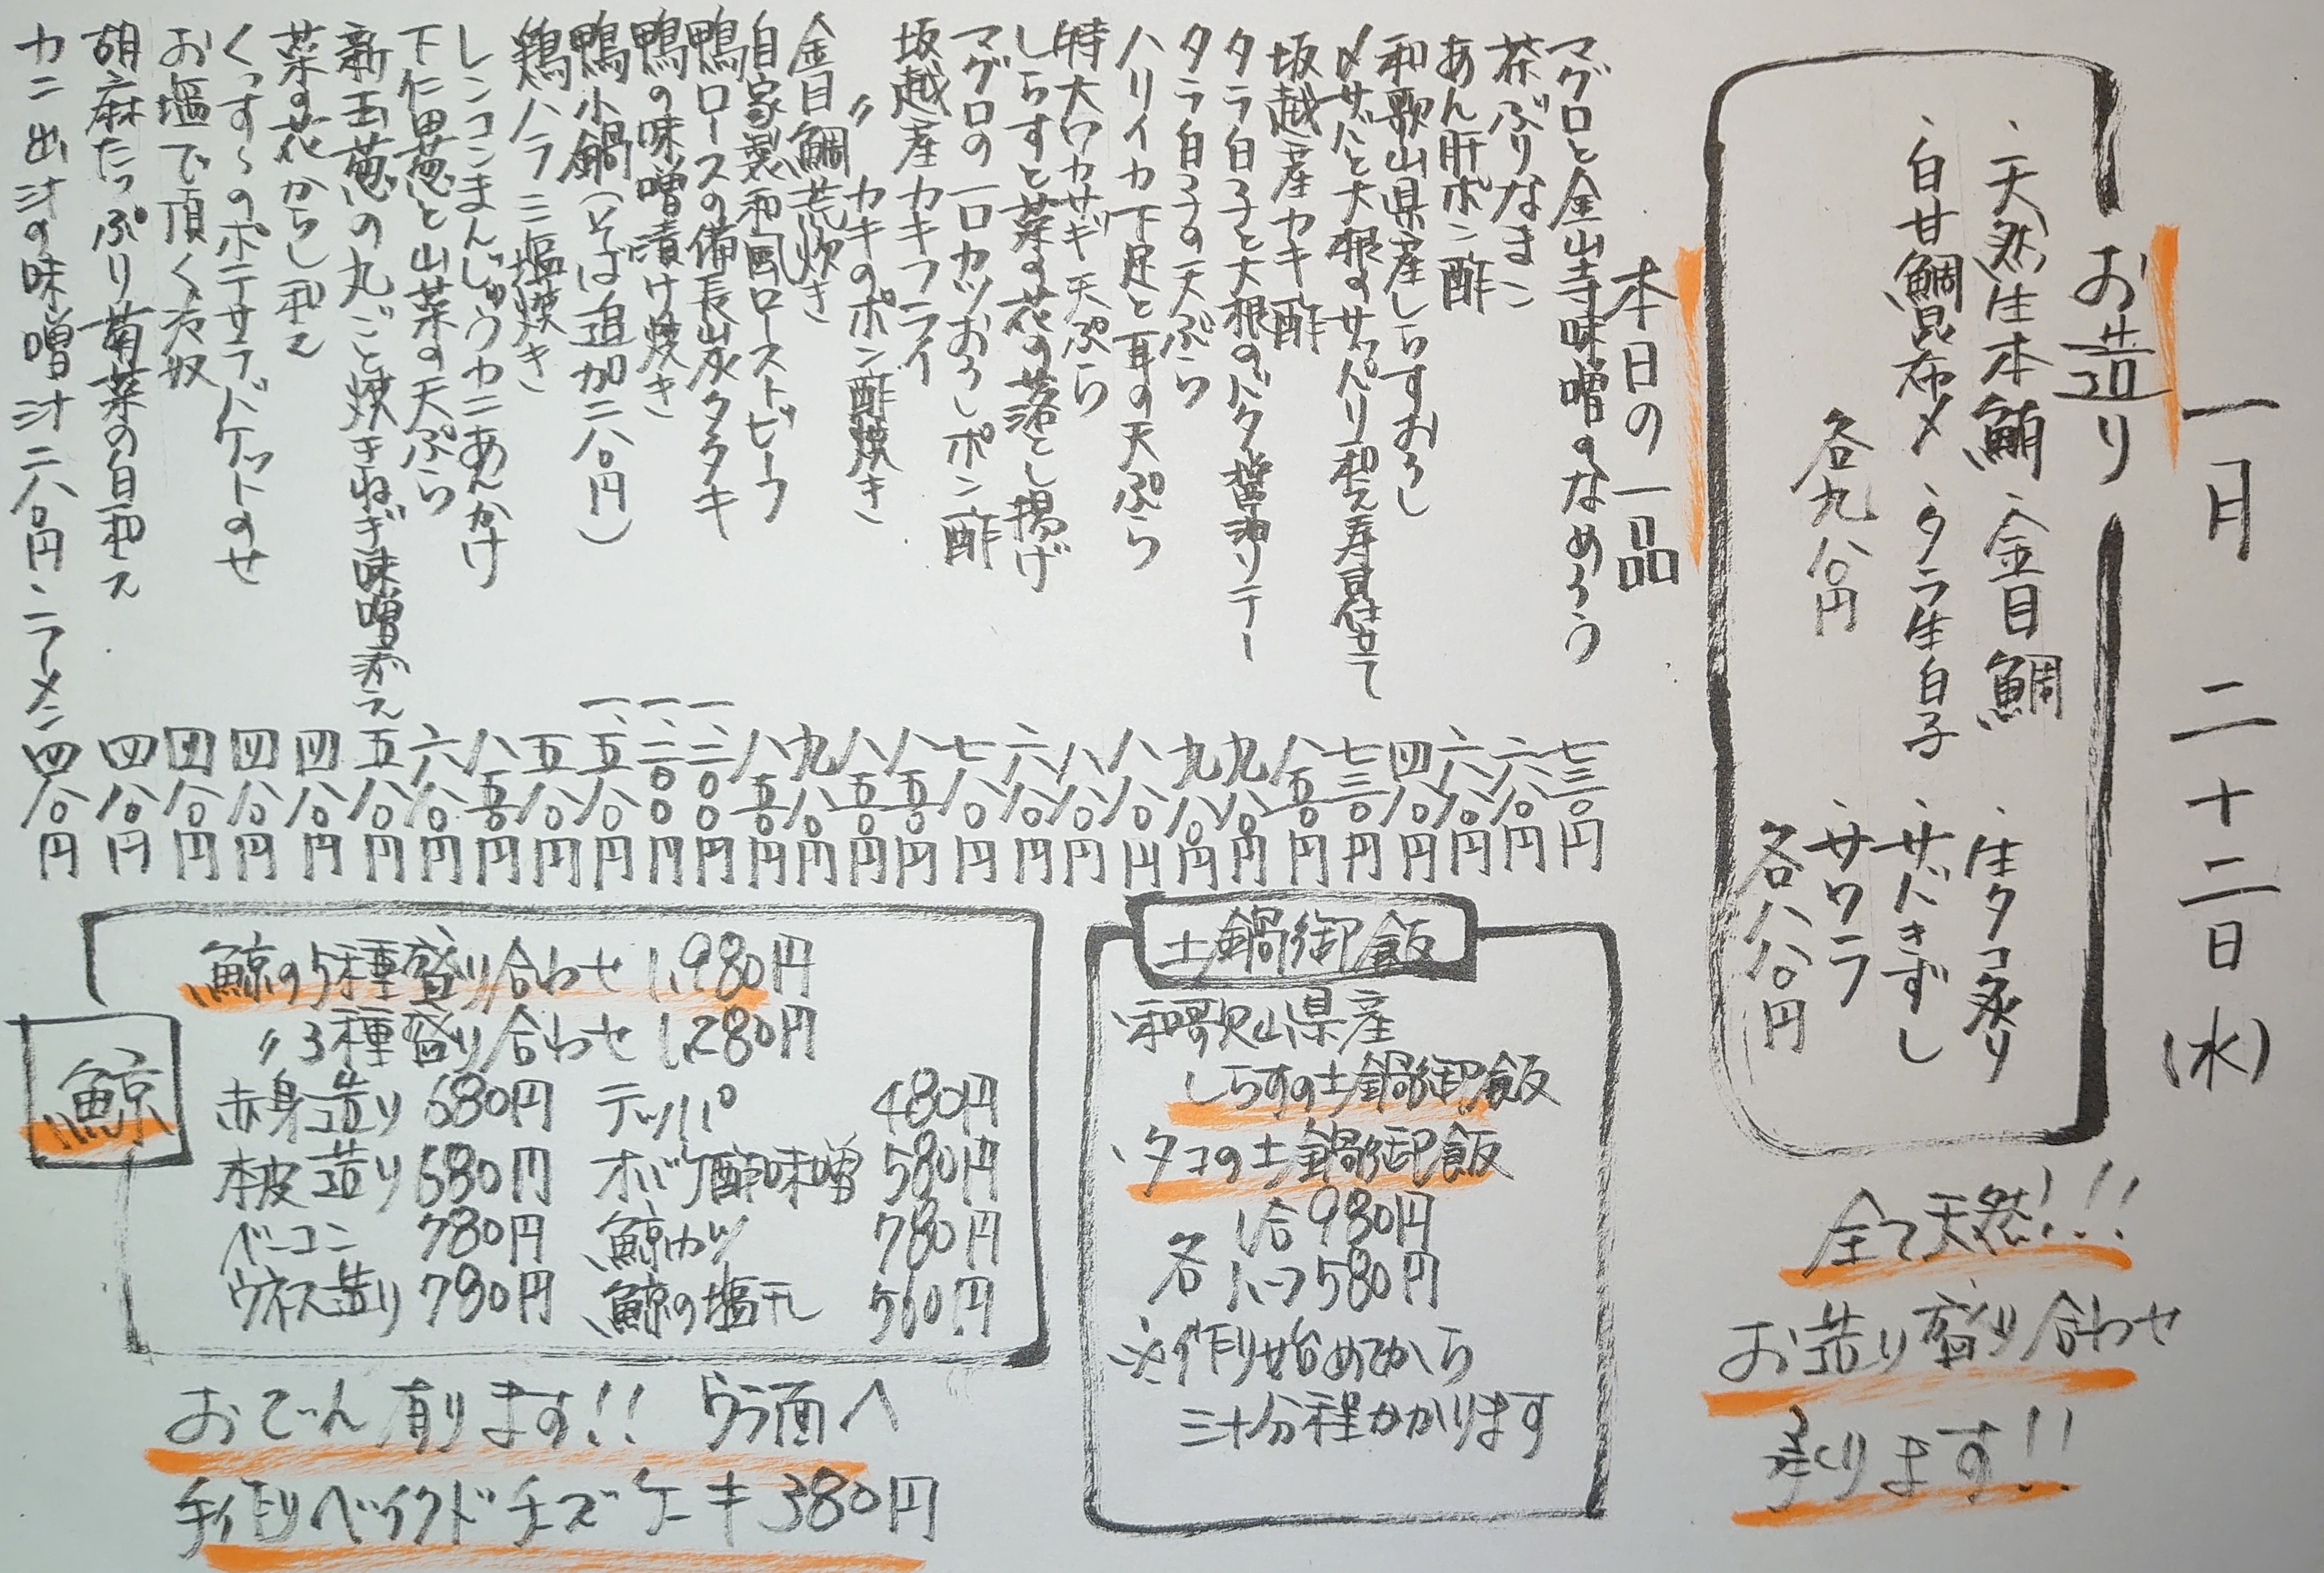 一月 二十二日(水)
お造り
、天然生本鮪 、金目鯛 、生タコ炙り
、白甘鯛昆布〆 、タラ生白子 、サバきずし
各九八〇円 、サワラ
各八八〇円
全て天然!!
お造り盛り合わせ
承ります!!
本日の一品
マグロと金山寺味噌のなめろう 七三〇円
茶ぶりなまこ 六八〇円
あん肝ポン酢 六八〇円
和歌山県産しらすおろし 四八〇円
〆サバと大根のサッパリ和え寿司仕立て 七三〇円
坂越産カキ酢 八五〇円
タラ白子と大根のバター醤油ソテー 九八〇円
タラ白子の天ぷら 九八〇円
ハリイカ下足と耳の天ぷら 八八〇円
特大ワカサギ天ぷら 八八〇円
しらすと菜の花の落とし揚げ 六八〇円
マグロの一口カツおろしポン酢 七八〇円
坂越産カキフライ 八五〇円
〃 カキのポン酢焼き 八五〇円
金目鯛荒炊き 九八〇円
自家製和風ローストビーフ 八五〇円
鴨ロースの備長炭タタキ 一、二〇〇円
鴨の味噌漬け焼き 一、二〇〇円
鴨小鍋(そば追加二八〇円) 一、五八〇円
鶏ハラミ塩焼き 五八〇円
レンコンまんじゅうカニあんかけ 八五〇円
下仁田葱と山菜の天ぷら 六八〇円
新玉葱の丸ごと焼きねぎ味噌添え 五八〇円
菜の花からし和え 四八〇円
くっすんのポテサラバケットのせ 四八〇円
お塩で頂く冷奴 四八〇円
胡麻たっぷり菊菜の白和え 四八〇円
カニ出汁の味噌汁二八〇円、ラーメン 四八〇円
土鍋御飯
、和歌山県産
しらすの土鍋御飯
、タコの土鍋御飯
各 1合 980円
ハーフ 580円
※作り始めてから
三十分程かかります
鯨
鯨の5種盛り合わせ 1,980円
〃 3種盛り合わせ 1,280円
赤身造り 680円 テッパ 480円
本皮造り 680円 オバケ酢味噌 580円
ベーコン 780円 鯨カツ 780円
ウネス造り 780円 鯨の塩干し 560円
おでん有ります!! ウラ面へ
手作りベイクドチーズケーキ 380円